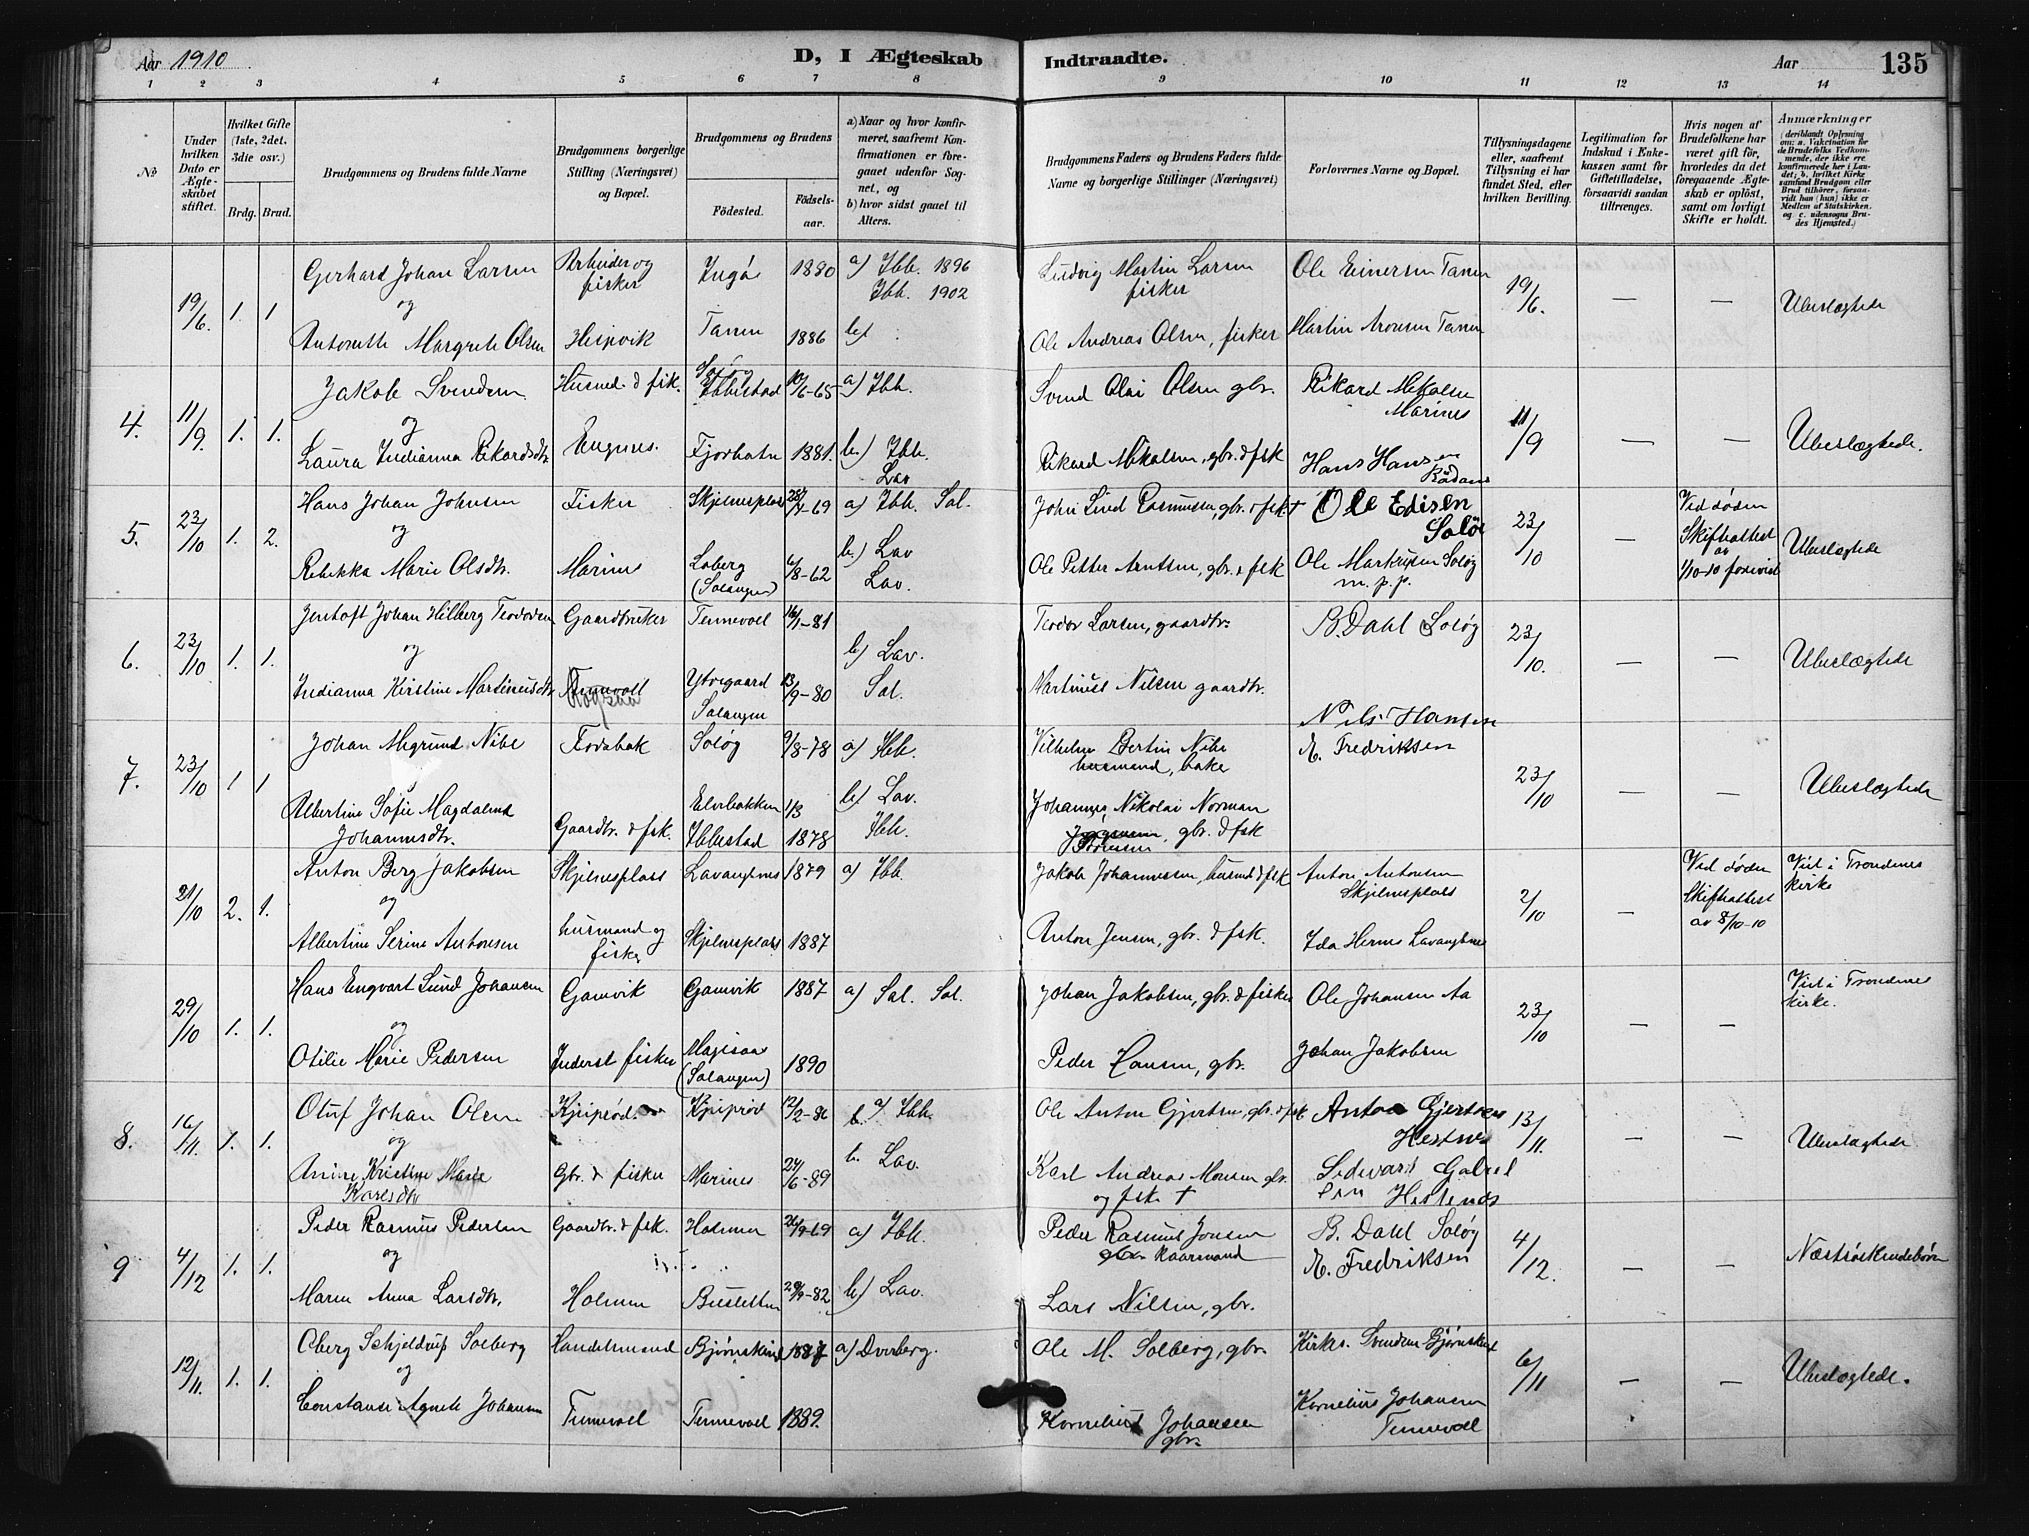 Aar 1910
D, I Ægteskab Indtraadte.
Aar 135
1 2 3 4 5 6 7 8 9 10 11 12 13 14
No
Under hvilken Dato er Ægteskabet stiftet.
Hvilket Gifte (1ste, 2det, 3dte osv.)
Brdg. Brud.
Brudgommens og Brudens fulde Navne
Brudgommens borgerlige Stilling (Næringsvei) og Bopæl.
Brudgommens og Brudens
Fødested.
Fødselsaar.
a) Naar og hvor konfirmeret, saafremt Konfirmationen er foregaaet udenfor Sognet, og
b) hvor sidst gaaet til Alters.
Brudgommens Faders og Brudens Faders fulde Navne og borgerlige Stillinger (Næringsvei)
Forlovernes Navne og Bopæl.
Tillysningsdagene eller, saafremt Tillysning ei har fundet Sted, efter hvilken Bevilling.
Legitimation for Indskud i Enkekassen samt for Giftetilladelse, forsaavidt saadan tiltrænges.
Hvis nogen af Brudefolkene har været gift før, hvorledes da det foregaaende Ægteskab er opløst, samt om lovligt Skifte er holdt.
Anmærkninger
(deriblandt Oplysning om: a. Vakcination for de Brudefolks Vedkommende, der ikke ere konfirmerede her i Landet; b. hvilket Kirkesamfund Brudgom eller Brud tilhører, forsaavidt han (hun) ikke er Medlem af Statskirken, og c. udensogns Brudes Hjemsted.)
19/6. 1. 1 Gerhard Johan Larsen Arbeider og fisker Ingø 1880 a) Ibb. 1896 Ludvig Martin Larsen fisker Ole Einersen 19/6. — — Ubeslægtede
og Ibb. 1902
Antonette Margrete Olsen 1886 b) Ole Andreas Olsen, fisker Martin
4. 11/9. 1. 1. Jakob Svendsen Husmd. & fisk. Ibbestad -65 a) Ibb. Svend Olai Olsen gbr. Rikard Mikalsen Marines 11/9 — — Ubeslægtede.
og
Laura Indianna Rikardsdtr. Engnes. 1881. b.) Ibb. Lav Rikard Mikalsen, gbr. & fsk Hans Hansen
5. 23/10 1. 2. Hans Johan Johnsen Fisker Skjelnesplads -69 a) Ibb. Sal. John Lind Rasmussen, gbr. & fsk + Ole Edisen Soløi 23/10 — Ved døden Skifteattest av 1/10-10 forevist Ubeslægtede
og
Rebekka Marie Olsdtr. Marines Loberg (Salangen) 6/8-62 b.) Lav Lav. Ole Petter Arntsen, gbr. & fsk Ole Markussen Soløy m. p. p.
6. 23/10 1. 1. Jentoft Johan Hilberg Teodorsen Gaardbruker Tennevoll 16/1-81 Teodor Larsen, gaardbr. B. Dahl Soløy 23/10. — — Ubeslægtede
og b) Lav.
Indianna Kristine Martinusdtr. Tennevoll Ytregaard Salangen 13/9-80 Sal. Martinus Nilsen gaardbr. Nils Hansen
7. 23/10 1 1 Johan Nibe Soløy 9/8-78 a) Ibb. Vilhelm Bertin Nibe husmand, E. Fredriksen 23/10 — — Ubeslægtede
Albertine Sofie Magdalena Johannesdtr. Gaardbr. & fsk. Elvebakken Ibbestad 1/3 1878 b) Lav. Ibb. Johannes Nikolai Norman gbr. & fsk
21/10 2. 1. Anton Berg Jakobsen Skjelnesplads Lavangsnes 1879 a) Ibb Jakob Johannessen, husmd & fsk Anton Antonsen Skjelnesplads 2/10 — Ved døden Skifteattest av 8/10-10 Viet i Trondenes kirke
og
Albertine Serine Antonsen husmand og fisker Skjelnesplads 1887 Anton Jensen, gbr. & fsk. Ida Lavangsnes
29/10 1. 1. Hans Engvart Lund Johansen Gamvik Gamvik 1887 a) Sal. Sal. Johan Jakobsen, gbr. & fisker Ole Johansen Aa 23/10 — — Viet i Trondenes kirke.
og
Otilie Marie Pedersen Inderst fisker (Salangen) 1890 Peder Hansen, gbr. Johan Jakobsen
8. 16/11. 1. 1. Oluf Johan Olsen 12/2-86 a) Ibb. Ole Anton Gjertsen, gbr. & fsk Anton Gjertsen Hestnes 13/11. — — Ubeslægtede
og
Kristine Marie Karlsdtr Gbr. & fisker Marines 24/6-89 b. Lav. Karl Andreas Monsen gbr. og fsk + Gabrielsen
9 4/12 1. 1. Peder Rasmus Pedersen Gaardbr. & fsk. Holmen a) Ibb. Peder Rasmus Jonsen Kaarmand B. Dahl Soløy 4/12. — — Næstsøskendebørn
og
Maren Anna Larsdtr. Holmen -82 b) Lav. Lars Nilsen, gbr. E. Fredriksen
12/11. 1. 1. Oberg Schjeldrup Solberg Handelsmand Bjørnskind 1887 a) Dverberg. Ole M. Solberg, gbr. Svendsen Bjørnskind 6/11 — — Ubeslægtede.
og
Constanse Agnete Johansen Tennevoll Tennevoll 1889. Kornelius Johansen gbr. Kornelius Johansen Tennevoll